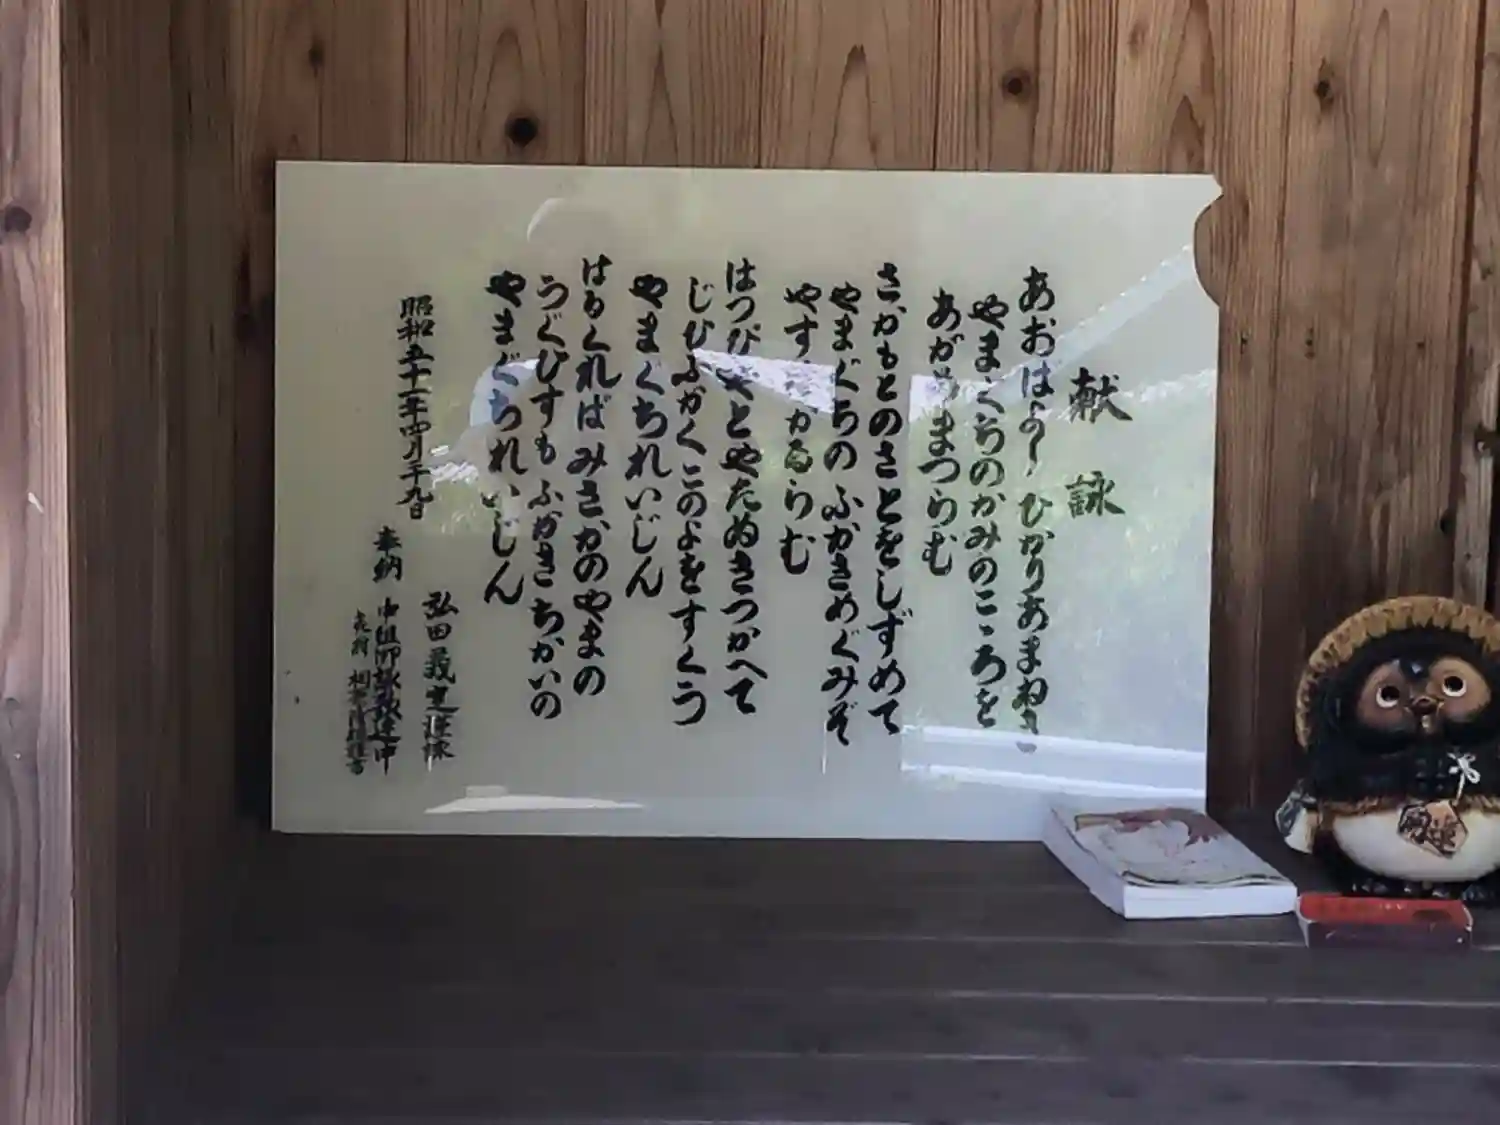 献詠
ひかりあまねき
やまぐちのかみのこゝろを
あがめまつらむ
さかもとのさとをしずめて
やまぐちのふかきめぐみぞ
やす かるらむ
とやたぬきつかへて
じひふかくこのよをすくう
やまぐちれいじん
はるくればみさかのやまの
うぐひすもふかきちかいの
やまぐちれいじん
昭和五十一年四月二十九日
弘田義 謹詠
奉納 中組御詠歌連中
開運